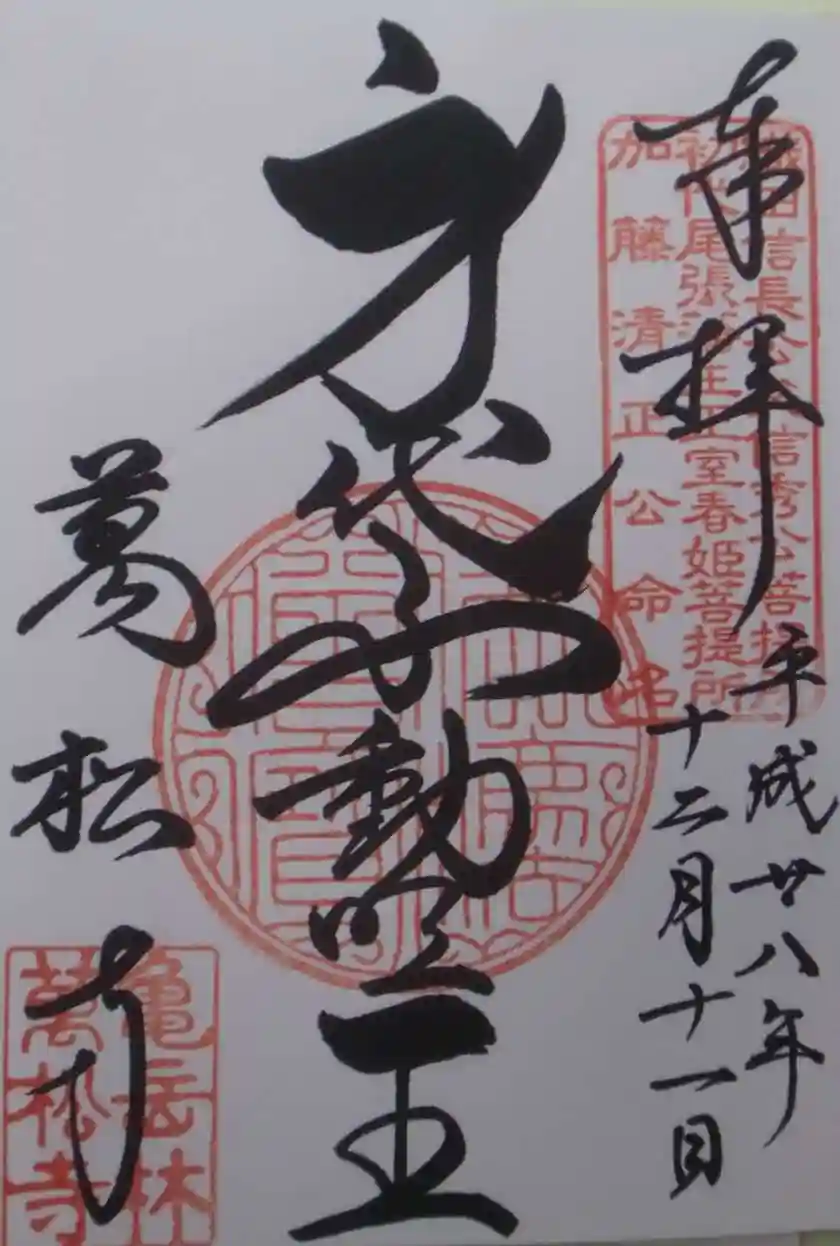 奉拝
織田信長公父信秀公菩提所
初代尾張藩主正室春姫菩提所
加藤清正公命
平成廿八年
十二月十一日
身代不動明王
萬松寺
亀岳林
萬松寺